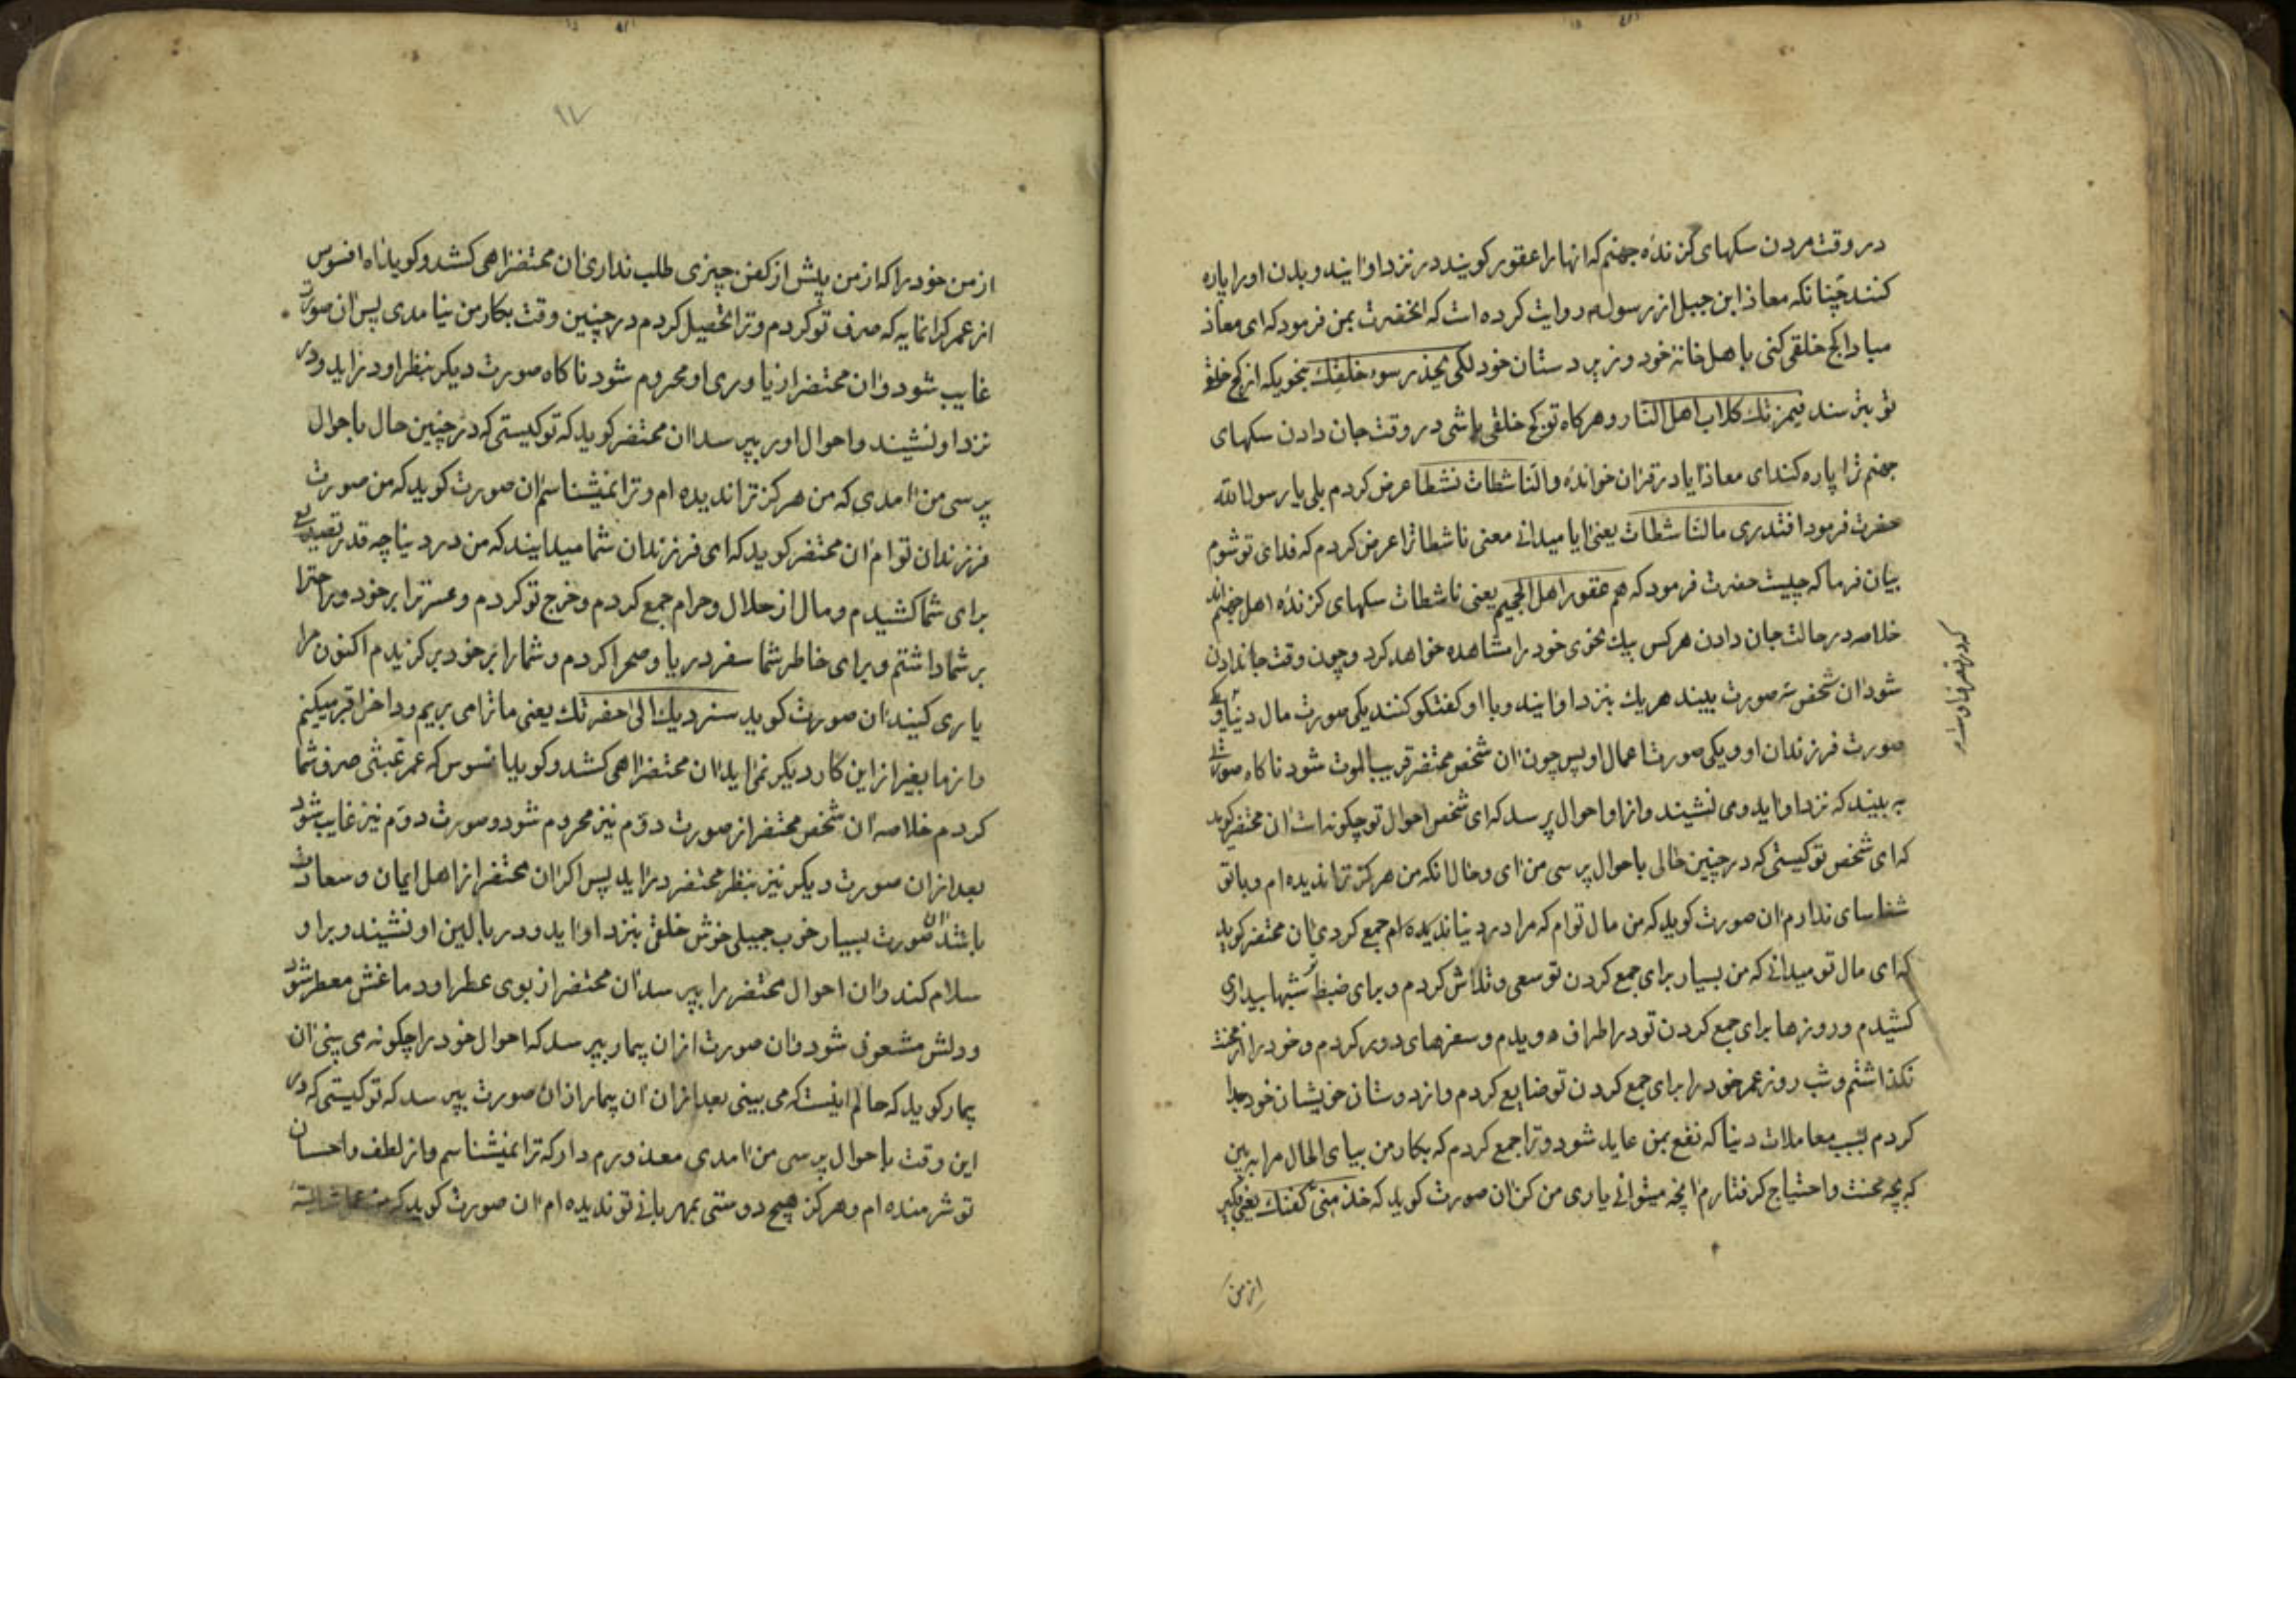 در وقت مردن سکهای کزندهٔ جهنم که انها را عقور کویند در نزد او ایند و بدن او را پاره
کنند چنانکه معاذ ابن جبل از رسول م روایت کرده است که انحضرت بمن فرمود که ای معاذ
مبادا کج خلقی کنی با اهل خانهٔ خود و زیر دستان خود لکی یحذر سوء خلقک بنحویکه از کج خلقی
تو بترسند فیمزقک کلاب اهل النار و هرکاه تو کج خلقی باشی در وقت جان دادن سکهای
جهنم ترا پاره کند ای معاذ ایا در قران خواندهٔ و الناشطات نشطا عرض کردم بلی یا رسول الله
حضرت فرمود افتدری ما لناشطات یعنی ایا میدانی معنی ناشطات را عرض کردم که فدای تو شوم
بیان فرما که چیست حضرت فرمود که هم عقور اهل الجحیم یعنی ناشطات سکهای کزندهٔ اهل جهنم اند
خلاصه در حالت جان دادن هر کس بیک نحوی خود را مشاهده خواهد کرد و چون وقت جاندادن
شود ان شخص سه صورت بیند هر یک بنزد او ایند و با او کفتکو کنند یکی صورت مال دنیا و یکی
صورت فرزندان او و یکی صورت اعمال او پس چون ان شخص محتضر قریب الموت شود ناکاه صورتی
به بیند که نزد او اید و می نشیند و از او احوال پرسد که ای شخص احوال تو چکونه است ان محتضر کوید
که ای شخص تو کیستی که در چنین حالی باحوال پرسی من ای و حال انکه من هرکز ترا ندیده ام و با تو
شناسای ندارم ان صورت کوید که من مال توام که مرا در دنیا جمع کردی ان محتضر کوید
که ای مال تو میدانی که من بسیار برای جمع کردن تو سعی و تلاش کردم و برای ضبط تو شبها بیداری
کشیدم و روزها برای جمع کردن تو در اطراف دویدم و سفرهای دور کردم و خود را از محنت
نکذاشتم و شب روز عمر خود را برای جمع کردن تو ضایع کردم و از دوستان خویشان خود جدا
کردم بسبب معاملات دینا که نفع بمن عاید شود و ترا جمع کردم که بکار من بیای الحال مرا ببین
که بچه محنت و احتیاج کرفتارم انچه میتوانی یاری من کن ان صورت کوید که خذ منی کفنک یعنی بکیر
از من
۱۷
از من خود را که از من پیش از کفن چیزی طلب نداری ان محتضر اهی کشد و کوید اه افسوس
از عمر کرانمایه که صرف تو کردم و ترا تحصیل کردم در چنین وقت بکار من نیامدی پس ان صورت
غایب شود و ان محتضر از یاوری او محروم شود ناکاه صورت دیکر بنظر او در اید و در
نزد او نشیند و احوال او بپرسد ان محتضر کوید که تو کیستی که در چنین حال باحوال
پرسی من امدی که من هرکز ترا ندیده ام و ترا نمیشناسم ان صورت کوید که من صورت
فرزندان توام ان محتضر کوید که ای فرزندان شما میدانیند که من در دنیا چه قدر تصدیع
برای شما کشیدم و مال از حلال و حرام جمع کردم و خرج تو کردم و عسرت را بر خود و راحت را
بر شما داشتم و برای خاطر شما سفر دریا و صحرا کردم و شما را بر خود برکزیدم اکنون مرا
یاری کنیند ان صورت کوید سنردیک الی حفرتک یعنی ما ترا می بریم و داخل قبر میکنیم
و از ما بغیر از این کار دیکر نمی اید ان محتضر اهی کشد و کوید یا افسوس که عمر عبثی صرف شما
کردم خلاصه ان شخص محتضر از صورت دوّم نیز محروم شود و صورت دوّم نیز غایب شود
بعد از ان صورت دیکر نیز بنظر محتضر در اید پس اکر ان محتضر از اهل ایمان و سعادت
باشد ان صورت بسیار خوب جمیلی خوش خلق بنزد او اید و در بالین او نشیند و بر او
سلام کند و ان احوال محتضر را بپرسد ان محتضر از بوی عطر او دماغش معطر شود
و دلش مشعوف شود و ان صورت از ان بیمار بپرسد که احوال خود را چکونه می بینی ان
بیمار کوید که حالم اینست که می بینی بعد از ان ان بیمار از ان صورت بپرسد که تو کیستی که در
این وقت باحوال پرسی من امدی معذورم دار که ترا نمیشناسم و از لطف و احسان
تو شرمنده ام و هرکز هیچ دوستی بمهربانی تو ندیده ام ان صورت کوید که من